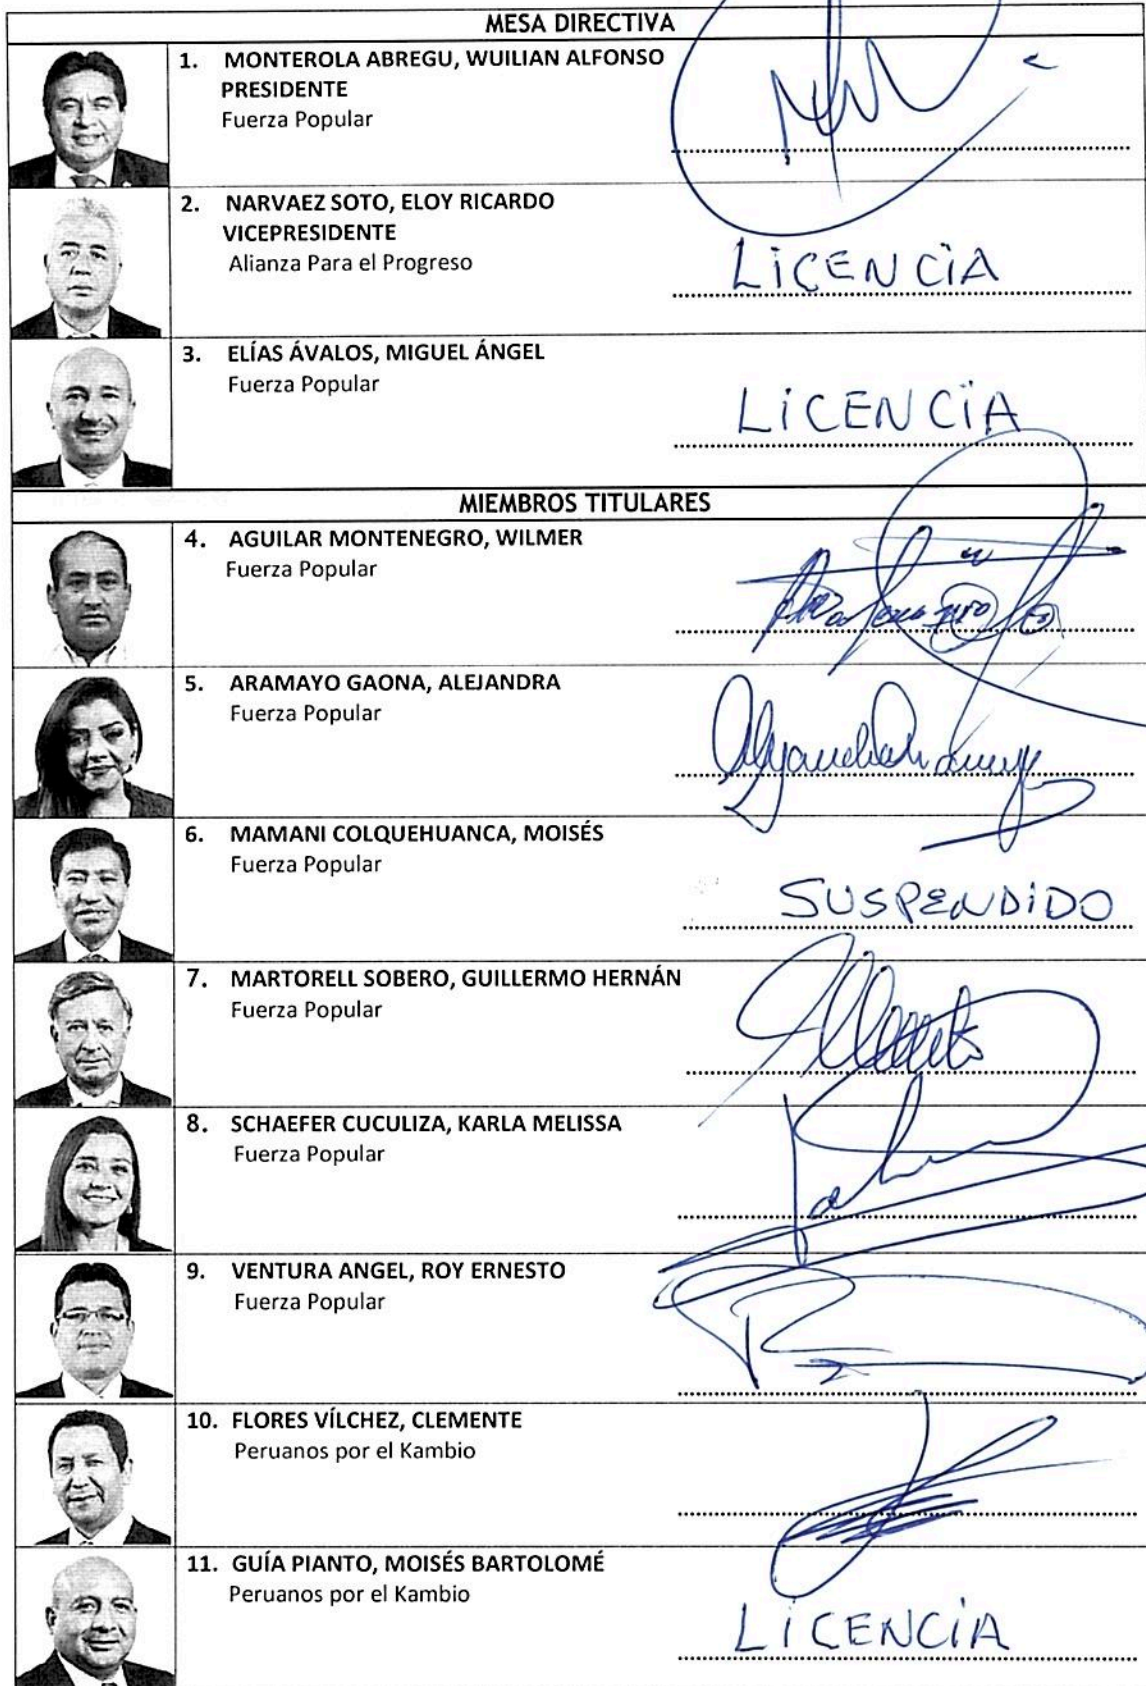 MESA DIRECTIVA
1. MONTEROLA ABREGU, WUILIAN ALFONSO
PRESIDENTE
Fuerza Popular
2. NARVAEZ SOTO, ELOY RICARDO
VICEPRESIDENTE
Alianza Para el Progreso
LiCENCiA
3. ELÍAS ÁVALOS, MIGUEL ÁNGEL
Fuerza Popular
LiCENCiA
MIEMBROS TITULARES
4. AGUILAR MONTENEGRO, WILMER
Fuerza Popular
5. ARAMAYO GAONA, ALEJANDRA
Fuerza Popular
6. MAMANI COLQUEHUANCA, MOISÉS
Fuerza Popular
SUSPENDiDO
7. MARTORELL SOBERO, GUILLERMO HERNÁN
Fuerza Popular
8. SCHAEFER CUCULIZA, KARLA MELISSA
Fuerza Popular
9. VENTURA ANGEL, ROY ERNESTO
Fuerza Popular
10. FLORES VÍLCHEZ, CLEMENTE
Peruanos por el Kambio
11. GUÍA PIANTO, MOISÉS BARTOLOMÉ
Peruanos por el Kambio
LiCENCiA